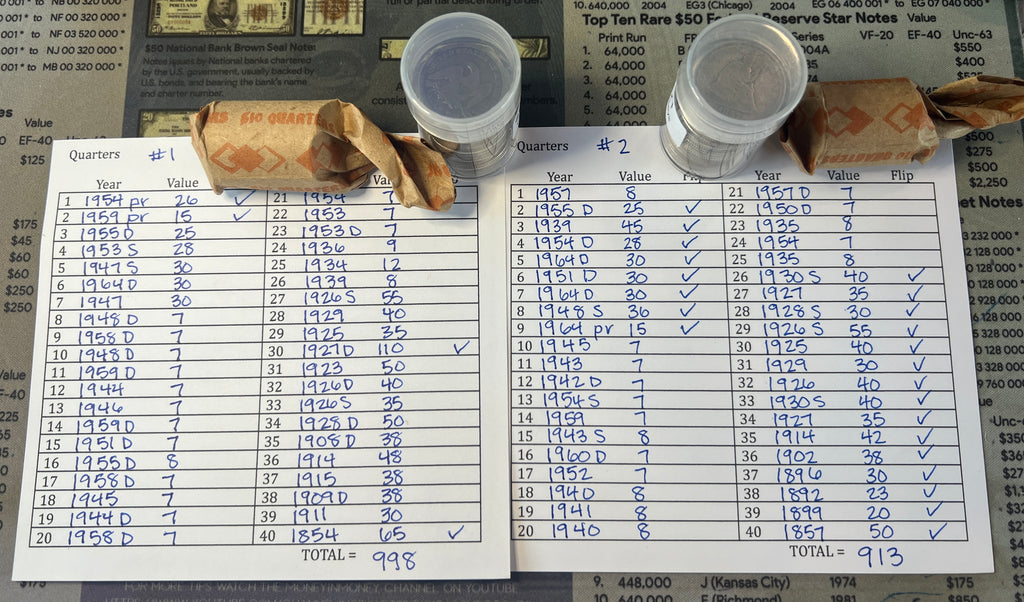 001* to NB 00 320 000*
001* to NF 03 520 000*
001* to NJ 00 320 000*
001* to MB 00 320 000*
PORTLAND
$50 National Bank Brown Seal Note:
Notes issued by National banks chartered
by the U.S. government, usually backed by
U.S. bonds, and bearing the bank's name
and charter number.
full or partial descending order.
10. 640,000 2004 EG3 (Chicago) 2004 EG 06 400 001* to EG 07 040 000*
Top Ten Rare $50 Reserve Star Notes Value
Print Run Series VF-20 EF-40 Unc-63
1. 64,000 $550
2. 64,000 $400
3. 64,000
4. 64,000
5. 64,000
6. 64,000
Value
EF-40
$125
$10 QUARTERS
Quarters #1
Year Value Value
1 1954 pr 26 ✓ 21 1954 7
2 1959 pr 15 ✓ 22 1953 7
3 1955 D 25 23 1953 D 7
4 1953 S 28 24 1936 9
5 1947 S 30 25 1934 12
6 1964 D 30 26 1939 8
7 1947 30 27 1926 S 55
8 1948 D 7 28 1929 40
9 1958 D 7 29 1925 35
10 1948 D 7 30 1927 D 110 ✓
11 1959 D 7 31 1923 50
12 1944 7 32 1926 D 40
13 1946 7 33 1926 S 35
14 1959 D 7 34 1928 D 50
15 1951 D 7 35 1908 D 38
16 1955 D 8 36 1914 48
17 1958 D 7 37 1915 38
18 1945 7 38 1909 D 38
19 1944 D 7 39 1911 30
20 1958 D 7 40 1854 65 ✓
TOTAL = 998
Quarters #2
Year Value Flip Year Value Flip
1 1957 8 21 1957 D 7
2 1955 D 25 ✓ 22 1950 D 7
3 1939 45 ✓ 23 1935 8
4 1954 D 28 ✓ 24 1954 7
5 1964 D 30 ✓ 25 1935 8
6 1951 D 30 ✓ 26 1930 S 40 ✓
7 1964 D 30 ✓ 27 1927 35 ✓
8 1948 S 36 ✓ 28 1928 S 30 ✓
9 1964 pr 15 ✓ 29 1926 S 55 ✓
10 1945 7 30 1925 40 ✓
11 1943 7 31 1929 30 ✓
12 1942 D 7 32 1926 40 ✓
13 1954 S 7 33 1930 S 40 ✓
14 1959 7 34 1927 35 ✓
15 1943 S 8 35 1914 42 ✓
16 1960 D 7 36 1902 38 ✓
17 1952 7 37 1896 30 ✓
18 1940 8 38 1892 23 ✓
19 1941 8 39 1899 20 ✓
20 1940 8 40 1857 50 ✓
TOTAL = 913
$175
$45
$60
$60
$250
$250
Value
$500
$275
$500
$2,250
et Notes
3 232 000*
0 128 000*
0 128 000*
2 928 000*
6 128 000*
5 328 000*
0 128 000*
9 760 000*
FOR MORE TIPS WATCH THE MONEYINMONEY CHANNEL ON YOUTUBE
9. 448,000 J (Kansas City) 1974 $175
10. 640,000 E (Richmond) 1981 $850